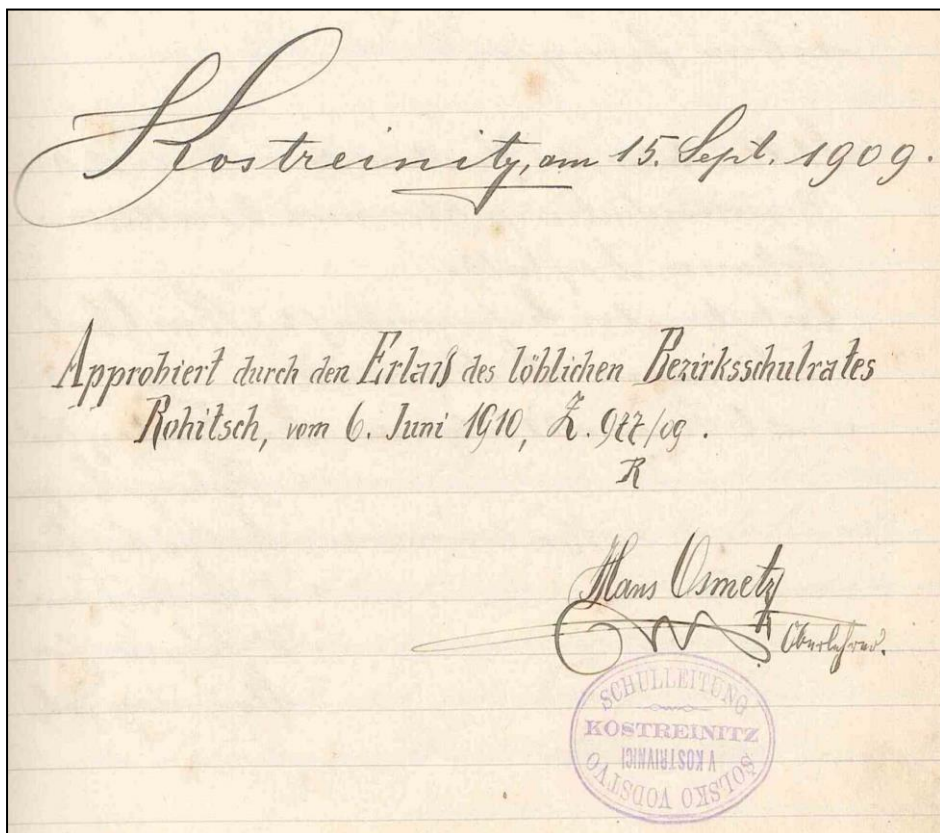 Kostreinitz, am 15. Sept. 1909.
Approbiert durch den Erlaß des löblichen Bezirksschulrates
Rohitsch, vom 6. Juni 1910, Z. 977/09.
R
Hans Osmetz
Oberlehrer.
SCHULLEITUNG
KOSTREINITZ
V KOSTRIVNICI
ŠOLSKO VODSTVO